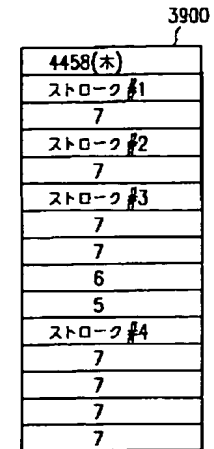 3900
4458(木)
ストローク #1
7
ストローク #2
7
ストローク #3
7
7
6
5
ストローク #4
7
7
7
7